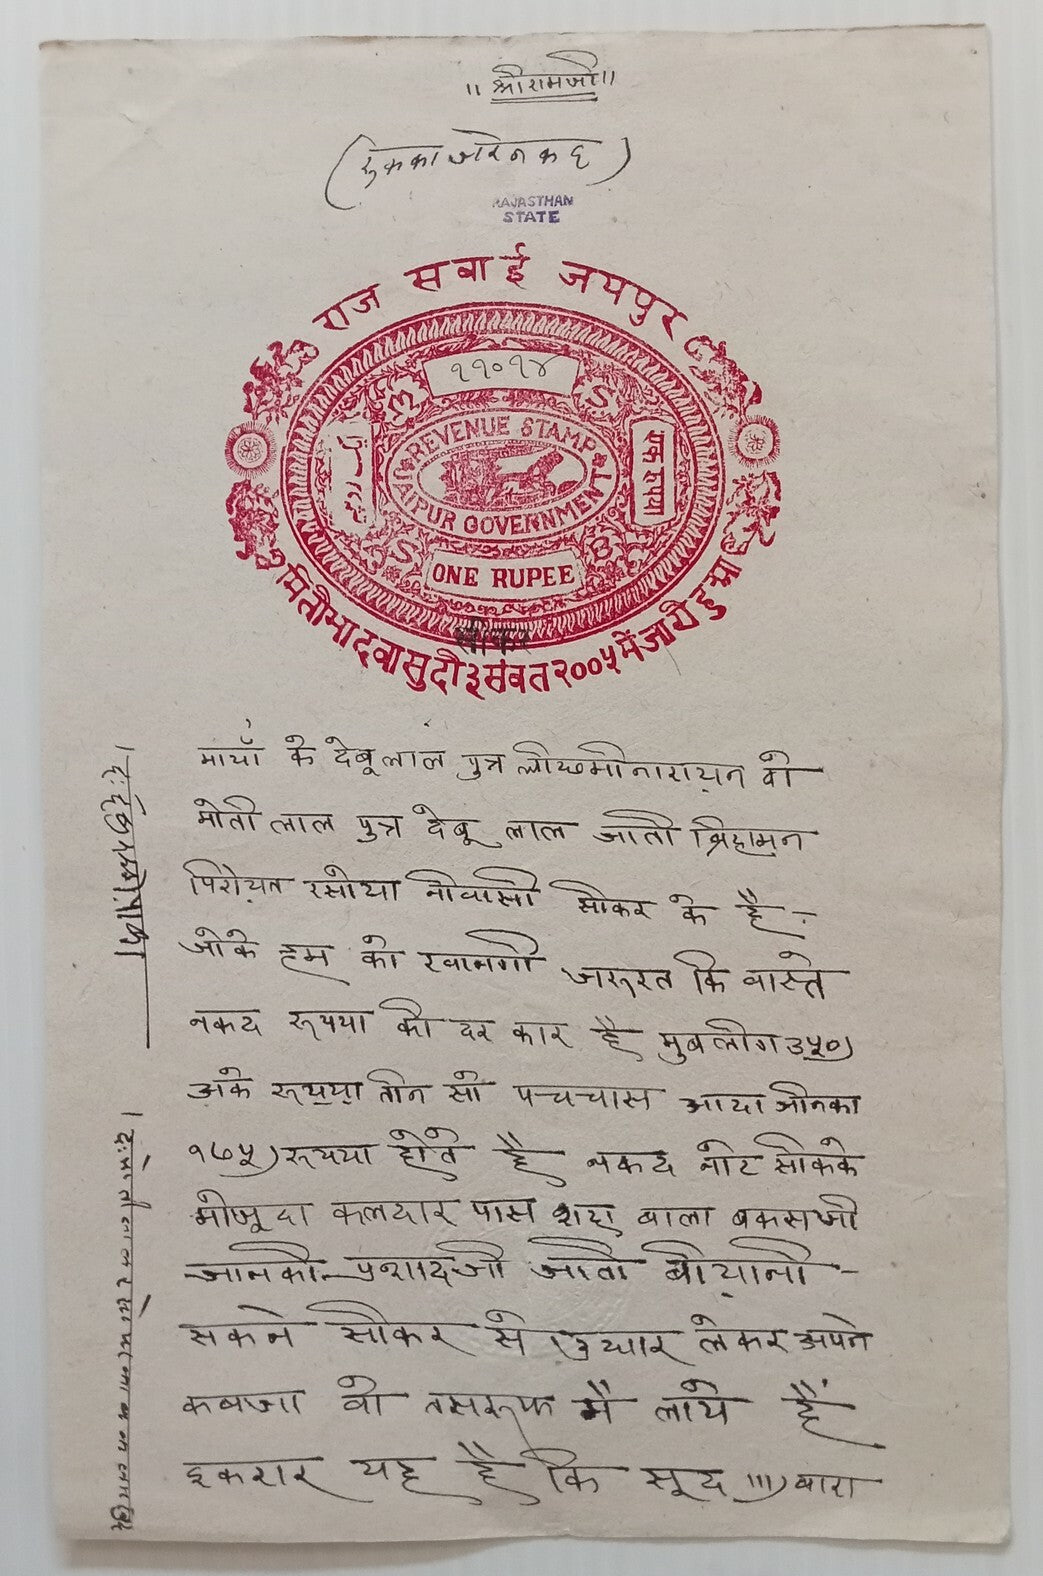 ॥ श्रीरामजी ॥
(रुकका जरे नकद)
RAJASTHAN
STATE
राज सवाई जयपुर
११०१४
REVENUE STAMP
JAIPUR GOVERNMENT
एक रुपया
ONE RUPEE
सीकर
मिती भादवा सुदी ३ संवत २००५ में जारी हुआ
मायाँ के देबू लाल पुत्र लीछमीनारायन वो
मोती लाल पुत्र देबू लाल जाती ब्रिहामन
पिरोयत रसोया नीवासी सीकर के है -
जोके हम को खानगी जरूरत कि वास्ते
नकद रूपया की दर कार है मुबलीग ३५०)
अंके रूपया तीन सो पच्चास आधा जीनका
१७५) रूपया होते है नकद नोट सीकके
मोजूदा कलदार पास शहा बाला बकसजी
जानकी प्रशादजी जाती बीयानी -
सकने सीकर से उधार लेकर अपने
कबजा वो तसरूफ मै लाये हैं
इकरार यह है कि सूद ॥।) बारा